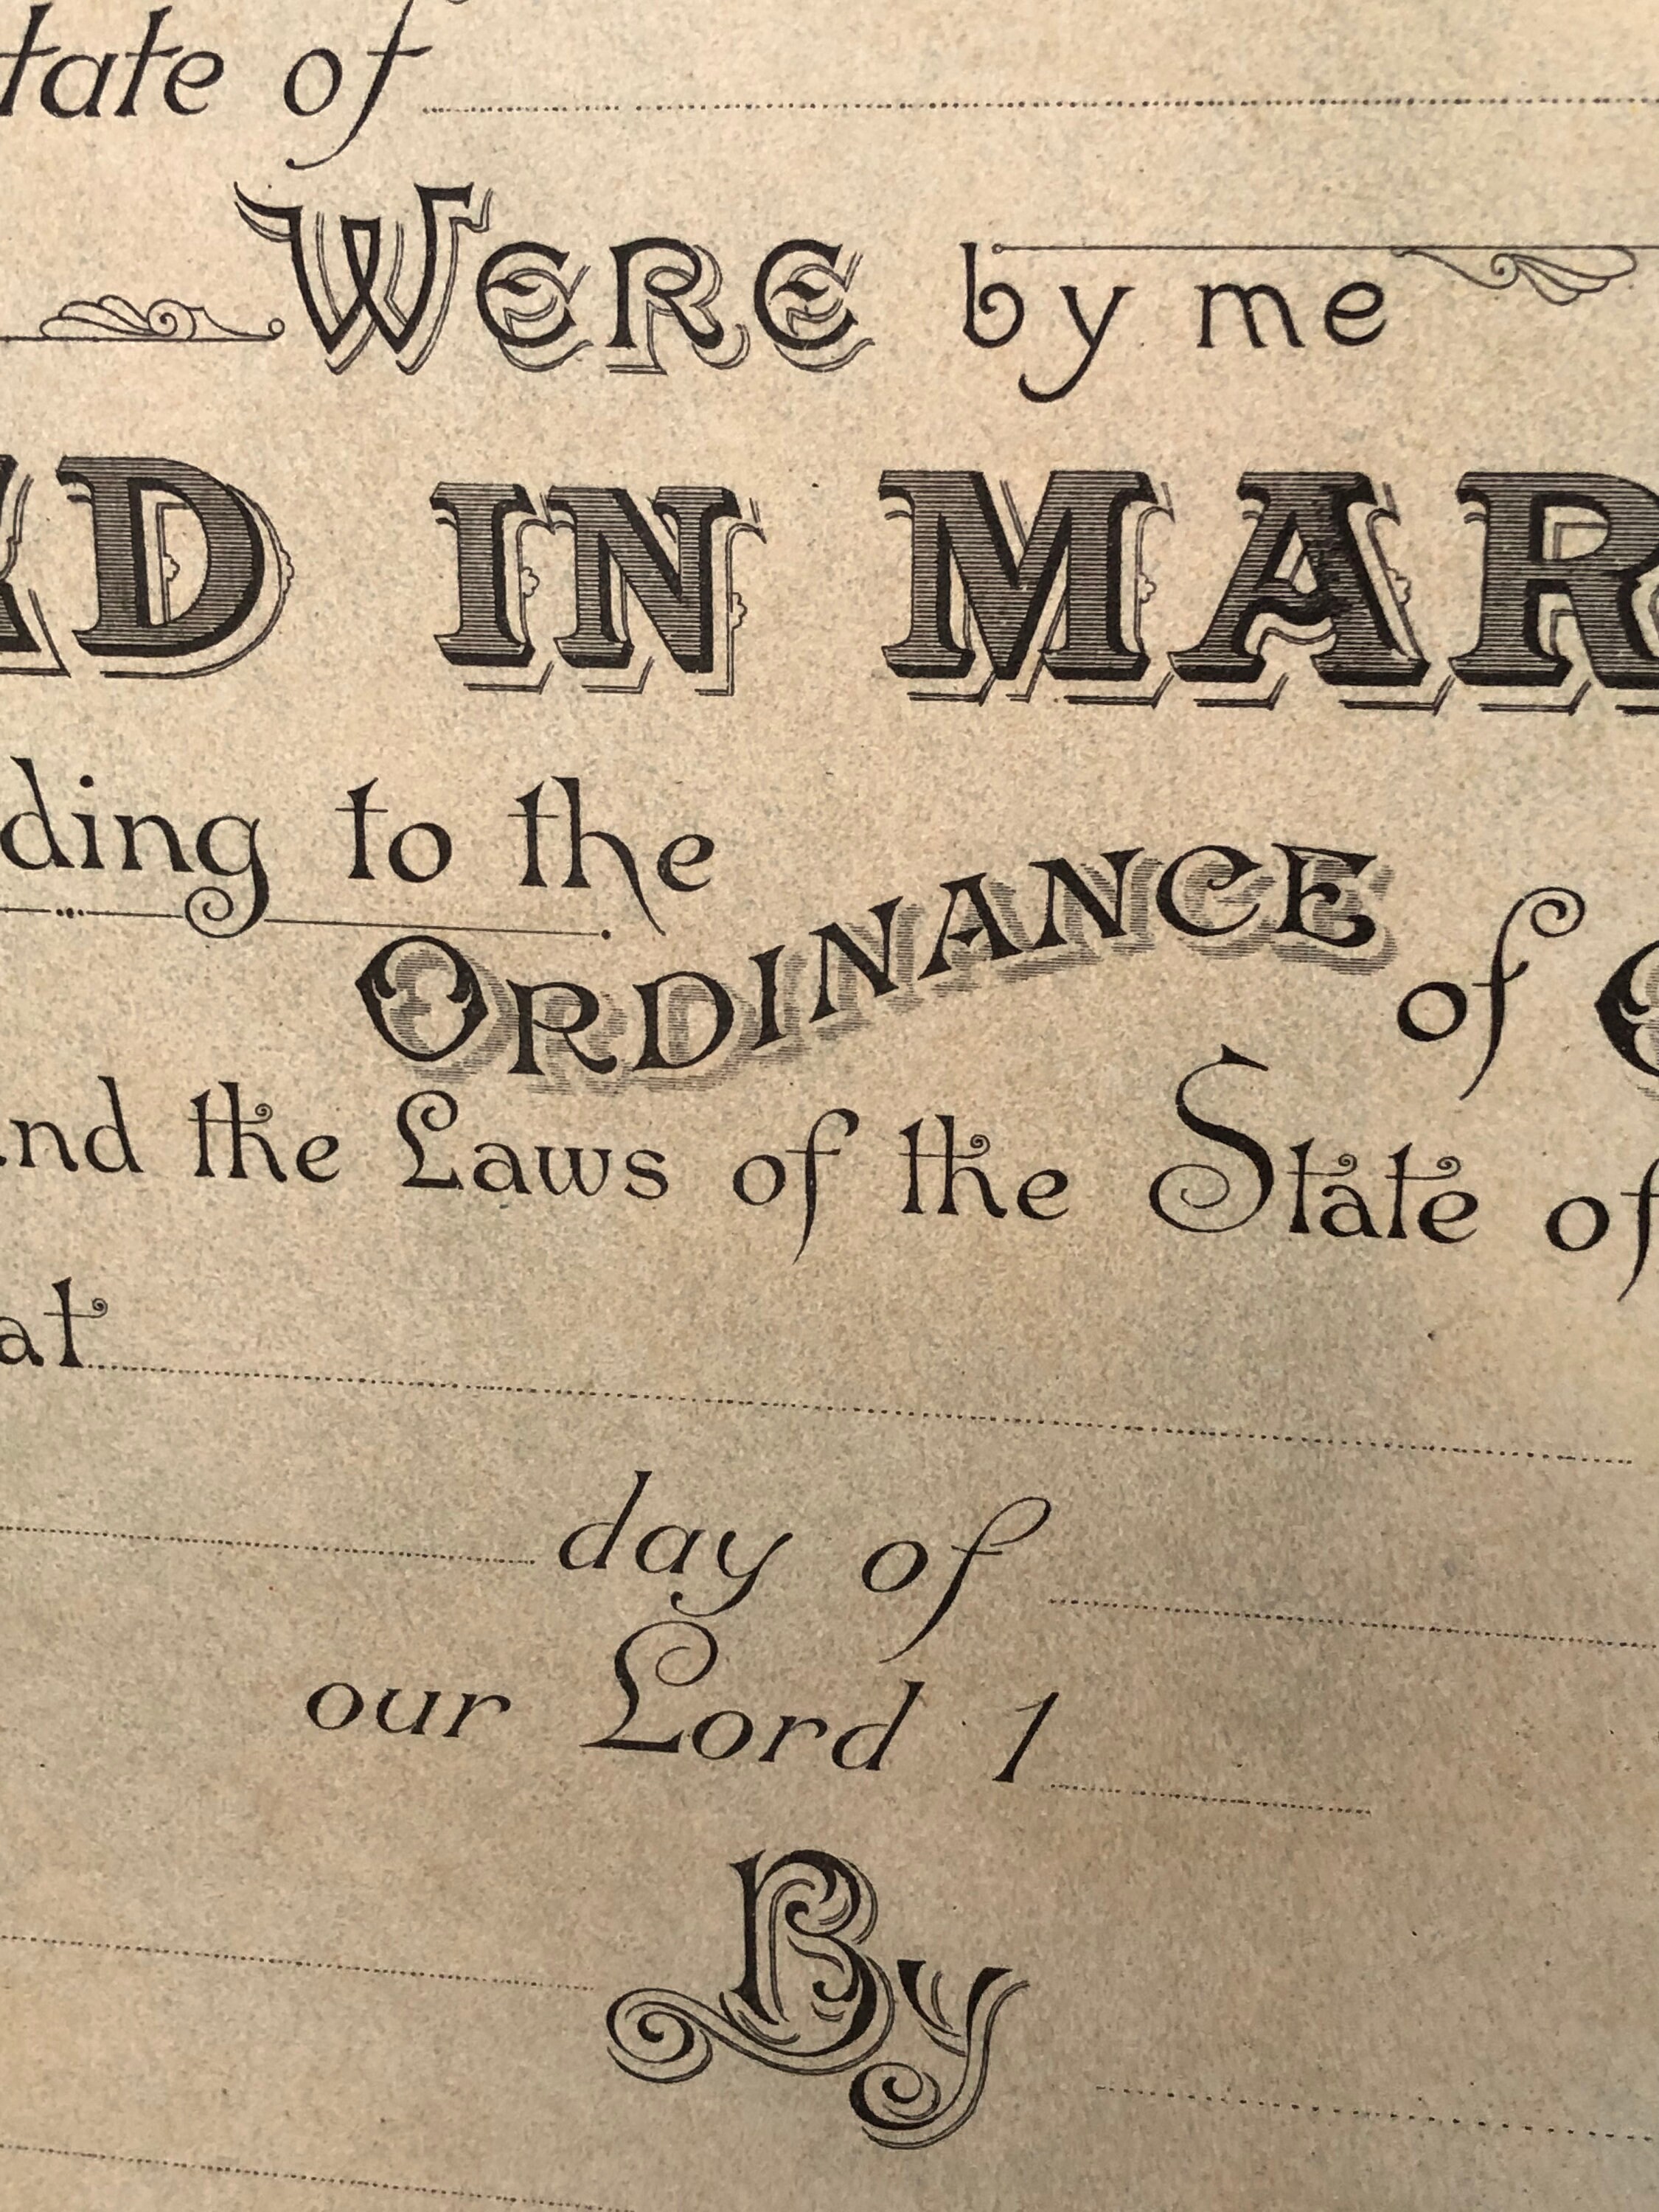 tate of
Were by me
ED IN MAR
ding to the
Ordinance of
nd the Laws of the State of
at
day of
our Lord 1
By